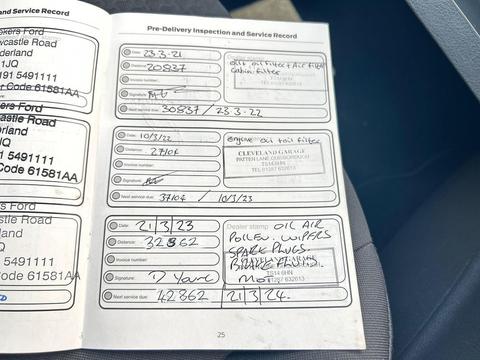 and Service Record
okers Ford
wcastle Road
derland
1JQ
191 5491111
r Code 61581AA
kers Ford
castle Road
erland
1JQ
1 5491111
Code 61581AA
ers Ford
astle Road
rland
JQ
5491111
Code 61581AA
Pre-Delivery Inspection and Service Record
Date: 23-3-21
Distance: 20837
Invoice number:
Signature:
Next service due: 30837 / 23-3-22
oil filter + Air filter
cabin filter
Date: 10/3/22
Distance: 27104
Invoice number:
Signature:
Next service due: 37104 / 10/3/23
engine oil filter
CLEVELAND GARAGE
PATTEN LANE, GUISBOROUGH
TS14 6HN
TEL 01287 632613
Date: 21/3/23
Distance: 32862
Invoice number:
Signature: D Young
Next service due: 42862 21/3/24.
Dealer stamp OIL AIR
POLLEN. WIPERS
SPARK PLUGS.
BRAKE FLUID.
MOT.
TS14 6HN
TEL 01287 632613
25